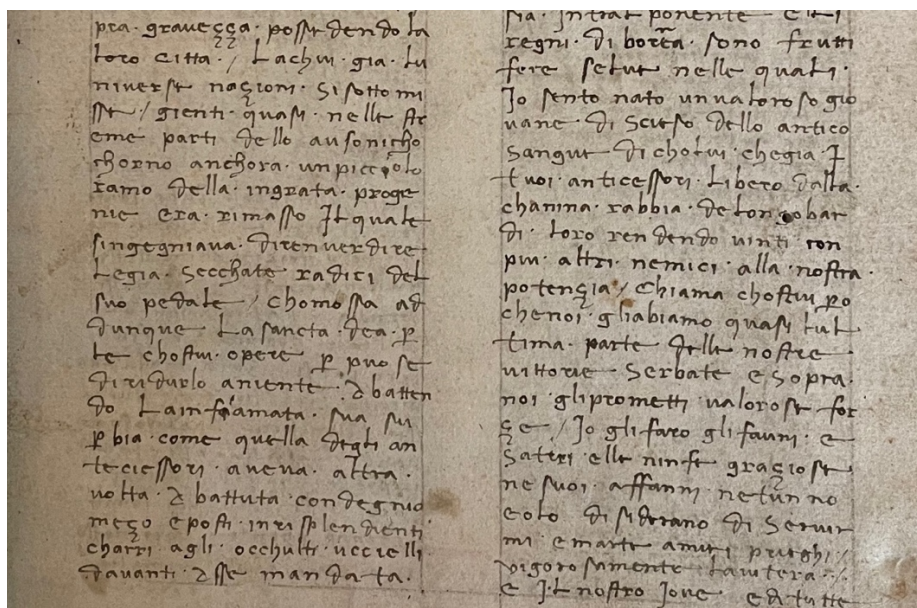 pra · graveçça · possedendo la
loro citta · / Lachui · gia · lu
niverse naçioni · Si sotto mi
sse / gienti · quasi · nelle str
eme parti dello ausonicho
chorno anchora · un picciolo
ramo della · ingrata · proge
nie era · rimasso Il quale
singegniava · direnverdire
Legia · Secchate radici del
suo pedale / chomossa ad
dunque La sancta · dea · p
le chostui · opere p puo se
di ridurlo aniente · & batten
do La infiamata · sua su
pbia · come quella degli an
teciessori · aveva · altra ·
volta · & battuta · con degnio
meço e posti · in risplendienti
charri · agli · occhulti · uccielli
davanti · asse mandata ·
sia · Intrat ponente e lti
regni · di borea · sono frutti
fere selve nelle quali ·
Io sento nato un valoroso gio
vane · di Scieso dello antico
Sangue di cholui · chegia · I
tuoi · anticessori · Libero dalla ·
chanina · rabbia · de longobar
di · loro rendendo vinti con
piu · altri · nemici · alla · nostra ·
potençia / Chiama chostui po
che noi · gliabiamo quasi lul
tima · parte delle nostre
vittorie Serbate e sopra ·
noi · gli prometti · valorose for
çe / Io gli faro gli fauni · e
Sateri · elle ninfe graçiose
ne suoi · affanni · netunno
eolo di siderano di Servir
mi · e marte amiei prieghi · /
vigorosamente Lautera · / ·
e Il nostro Jove e da tutte